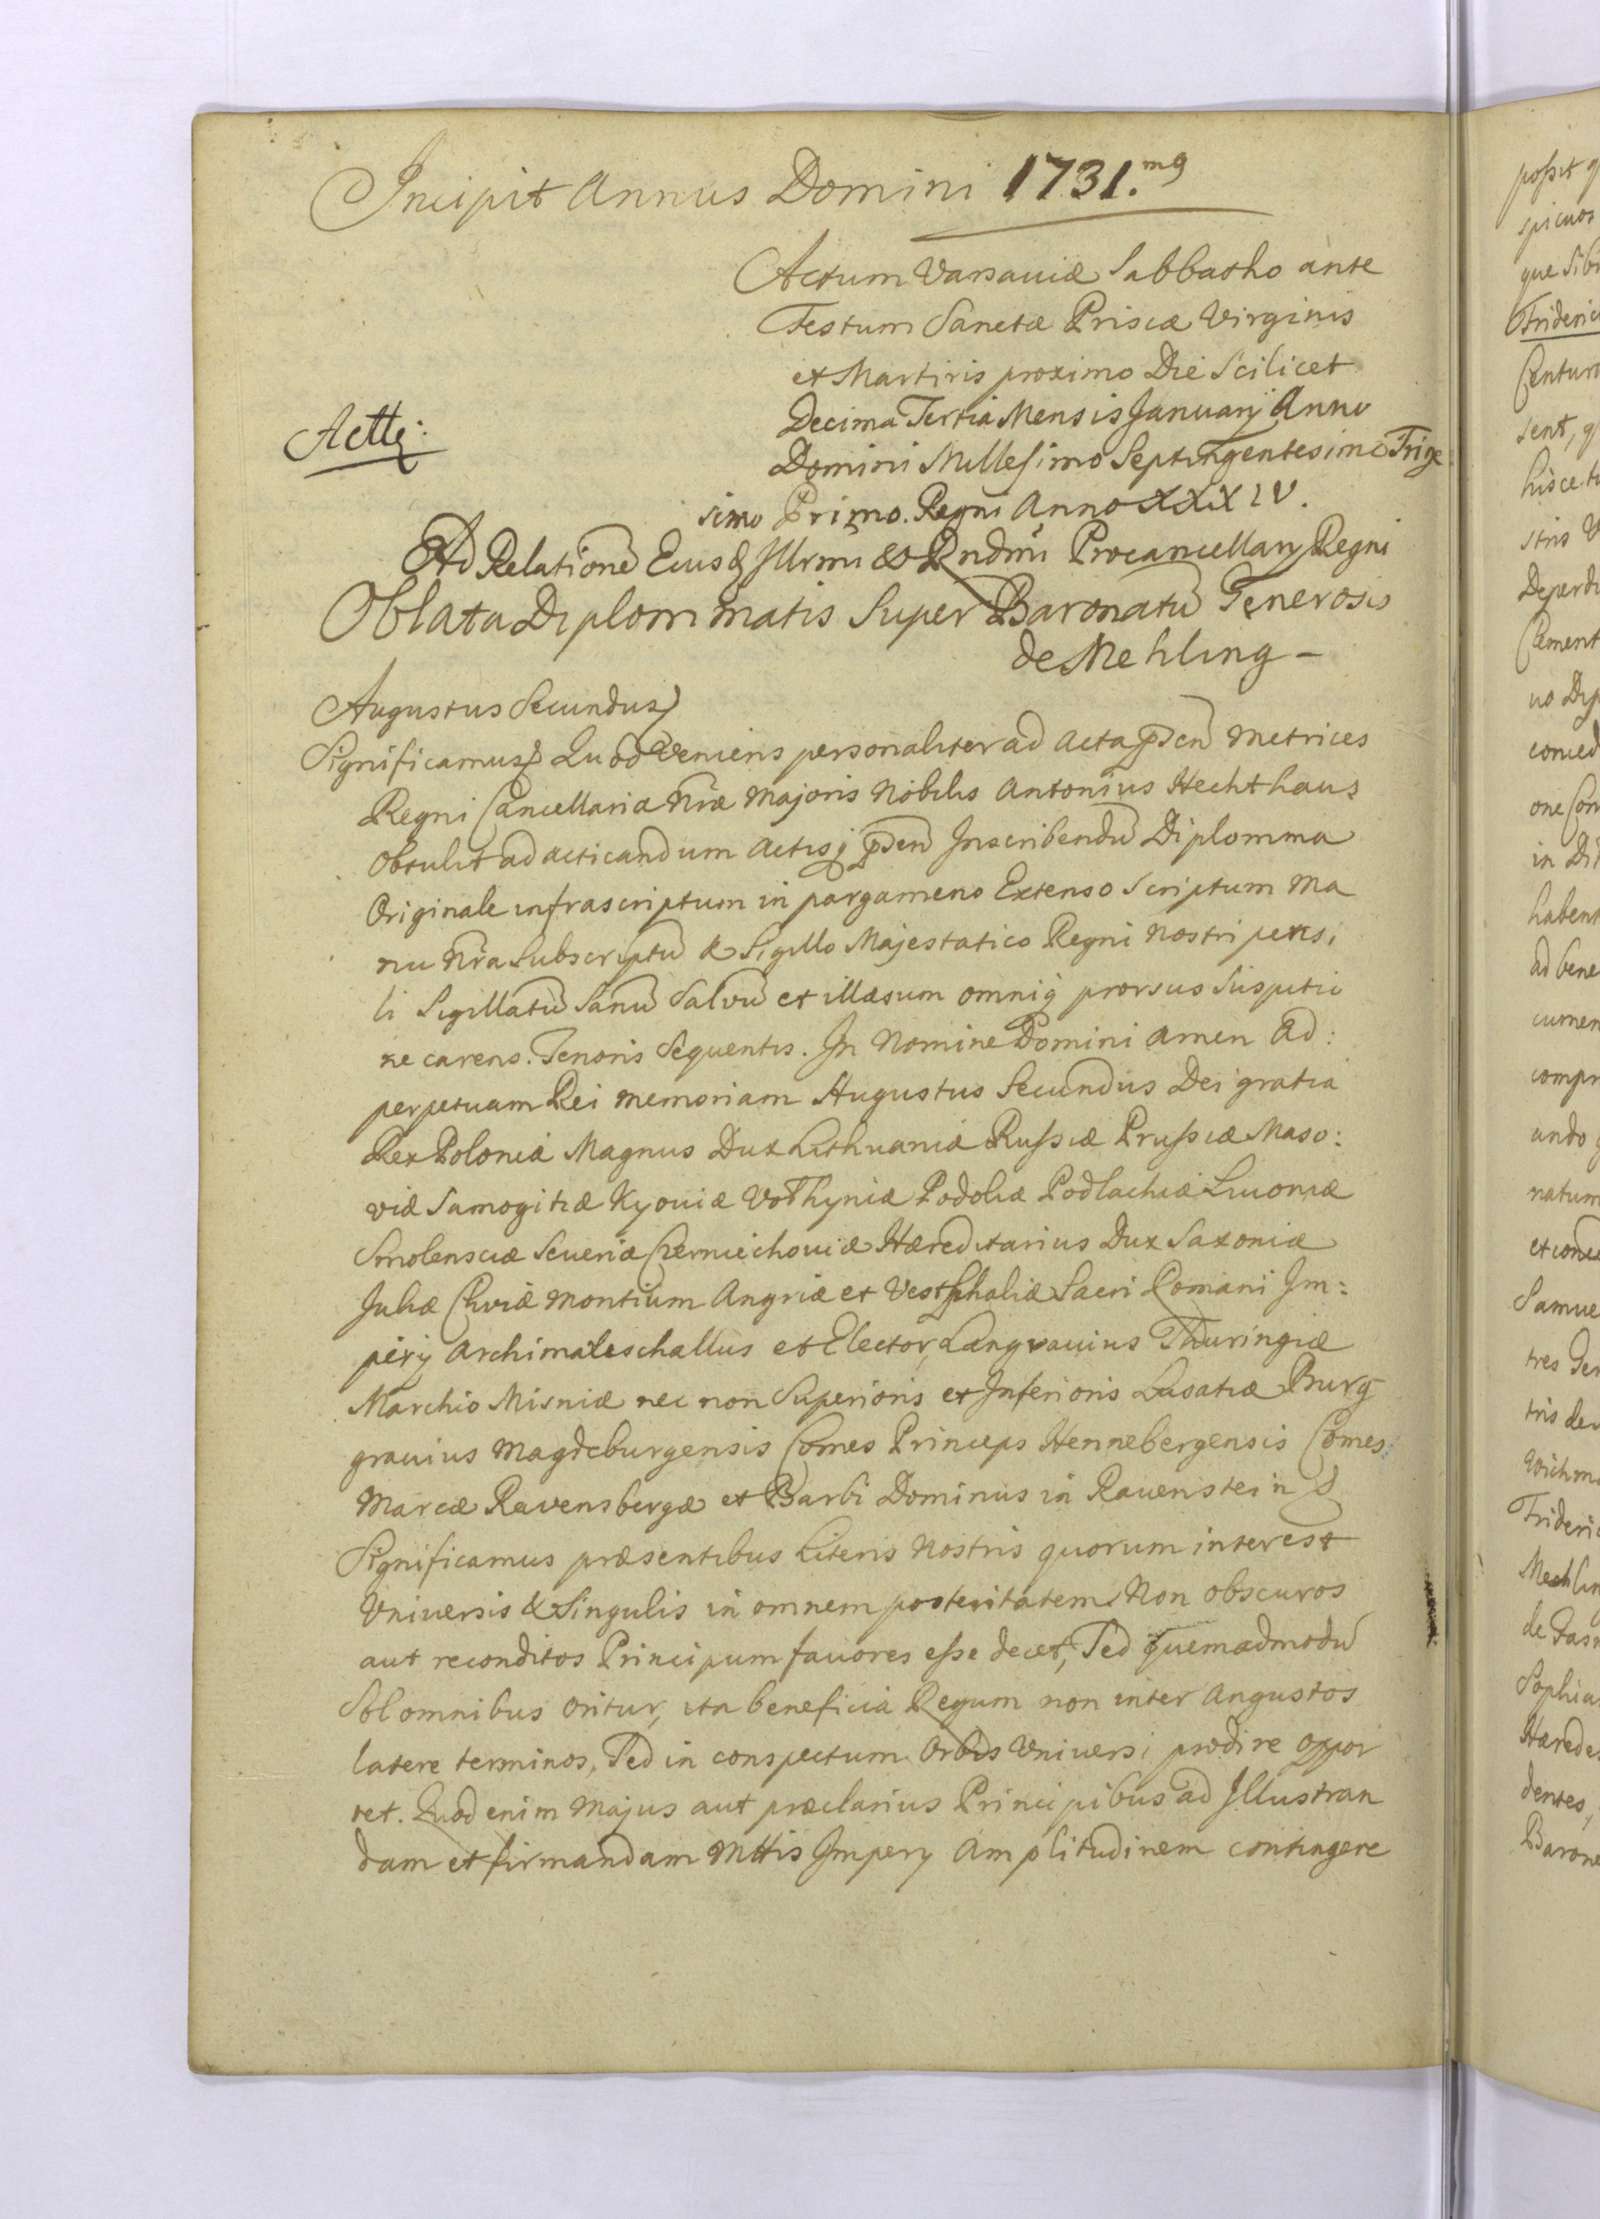 Incipit Annus Domini 1731.mq
Actum Varsaviæ Sabbatho ante
Festum Sanctæ Priscæ Virginis
et Martiris proximo Die Scilicet
Decima Tertia Mensis Januarij Anno
Domini Millesimo Septingentesimo Trige
simo Primo. Regni Anno XXXIV.
Actt:
Ad Relationē Eius Illrmi & Rndmi Procancellarij Regni
Oblata Diplommatis Super Baronatū Generosis
de Mehling –
Augustus Secundus
Significamus Quod Veniens personaliter ad Acta pñ Metrices
Regni Cancellariæ Nræ Majoris Nobilis Antonius Hechthaus
Obtulit ad acticandum Actisq pñ Inscribendū Diplomma
Originale infrascriptum in pargameno Extenso Scriptum Ma
nu Nra Subscriptū & Sigillo Majestatico Regni Nostri pensi
li Sigillatū Sanū Salvū et illæsum omniq prorsus Suspitio
ne carens. Tenoris Sequentis. In Nomine Domini Amen Ad:
perpetuam Rei memoriam Augustus Secundus Dei gratia
Rex Poloniæ Magnus Dux Lithuaniæ Russiæ Prussiæ Maso:
viæ Samogitiæ Kyoviæ Volhyniæ Podoliæ Podlachiæ Livoniæ
Smolensciæ Severiæ Czerniechoviæ Hæreditarius Dux Saxoniæ
Juliæ Cliviæ Montium Angriæ et Vestphaliæ Sacri Romani Im:
perij Archimareschallus et Elector, Langravius Thuringiæ
Marchio Misniæ nec non Superioris et Inferioris Lusatiæ Burg
gravius Magdeburgensis Comes Princeps Hennebergensis Comes
Marcæ Ravensbergæ et Barbi Dominus in Ravenstein
Significamus præsentibus Literis Nostris quorum interest
Universis & Singulis in omnem posteritatem Non obscuros
aut reconditos Principum favores esse decet, Sed quemadmodū
Sol omnibus oritur, ita beneficia Regum non inter Angustos
latere terminos, Sed in conspectum Orbis Universi prodire oppor
tet. Quod enim Majus aut præclarius Principibus ad Illustran
dam et firmandam Mttis Imperij Amplitudinem contingere